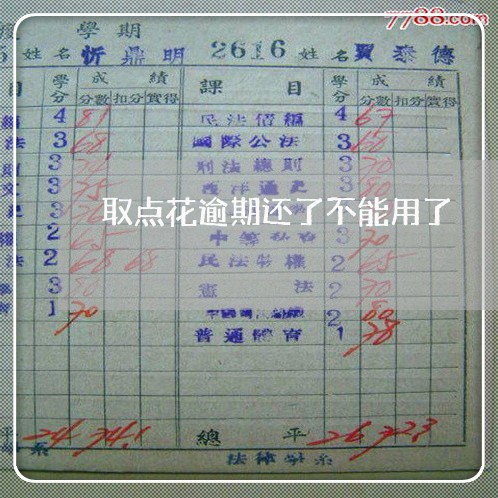 7788.com
學期
姓名 忻鼎明 2616 姓名 賈泰德
目 學分 成績 課目 學分 成績
分數 扣分 實得 分數 扣分 實得
4 81 民法債編 4 67
法 3 68 國際公法 3 60
3 刑法總則 3 70
3 75 西洋通史 3 80
取点花逾期还了不能用了
2 65 3 70
法 2 68 68 民法物權 2 65
3 80 憲法 2 70
1 70 2 80
普通體育 1 78
平 24 74.1 總平 26 72.3
系 法律學系